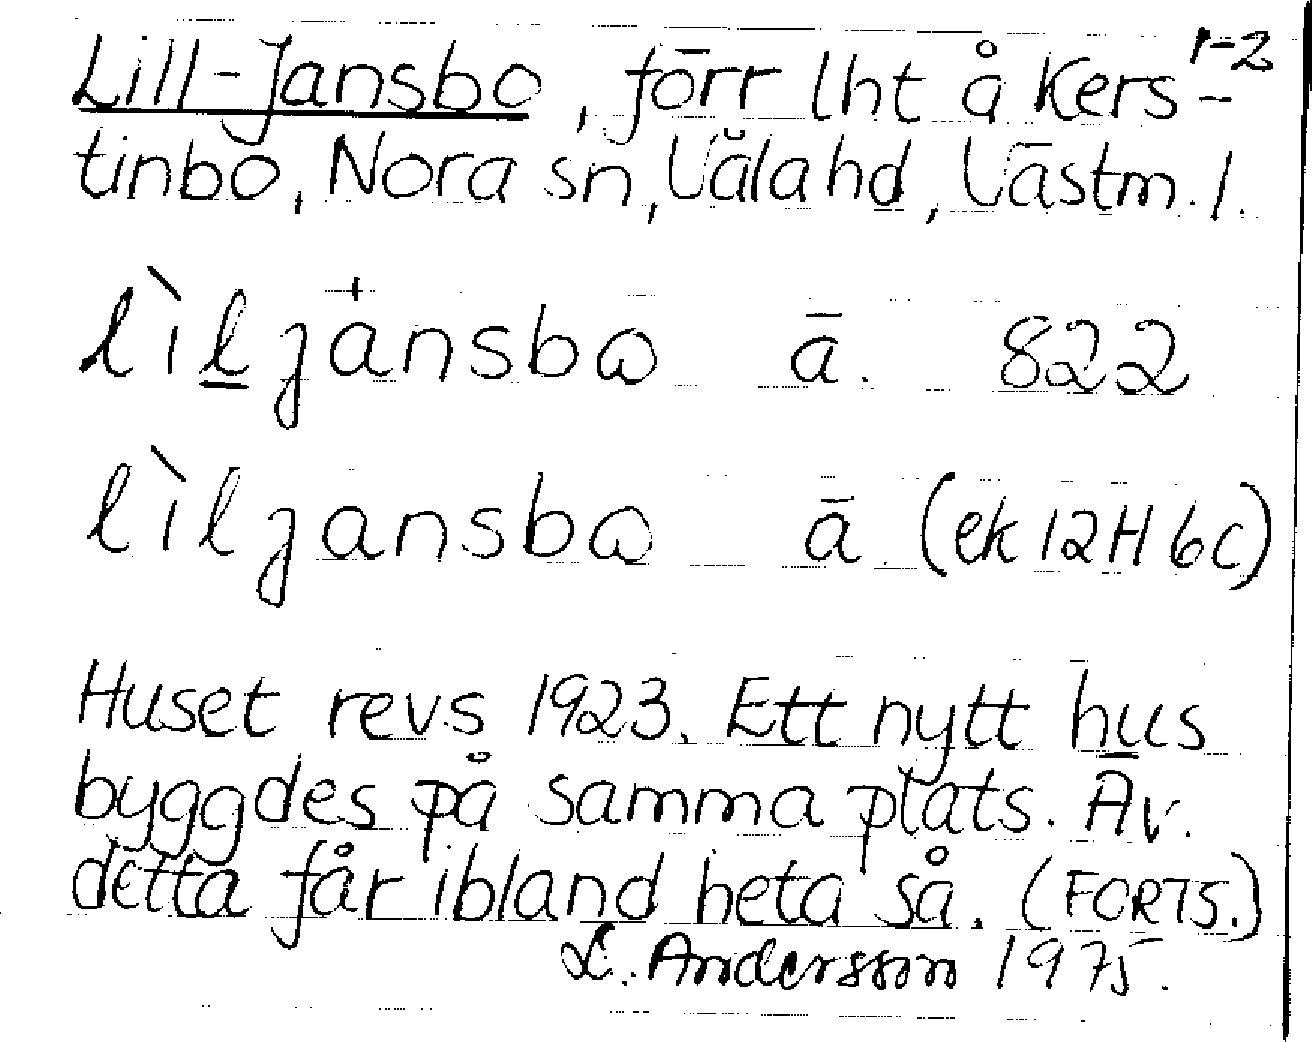 Lill-Jansbo, förr lht å Kers- 1-2
tinbo, Nora sn, Våla hd, Västm. l.
lìljansbɷ ä. 822
lìljansbɷ ä. (ek 12H 6c)
Huset revs 1923. Ett nytt hus
byggdes på samma plats. Äv.
detta får ibland heta så. (FORTS.)
L. Andersson 1975.